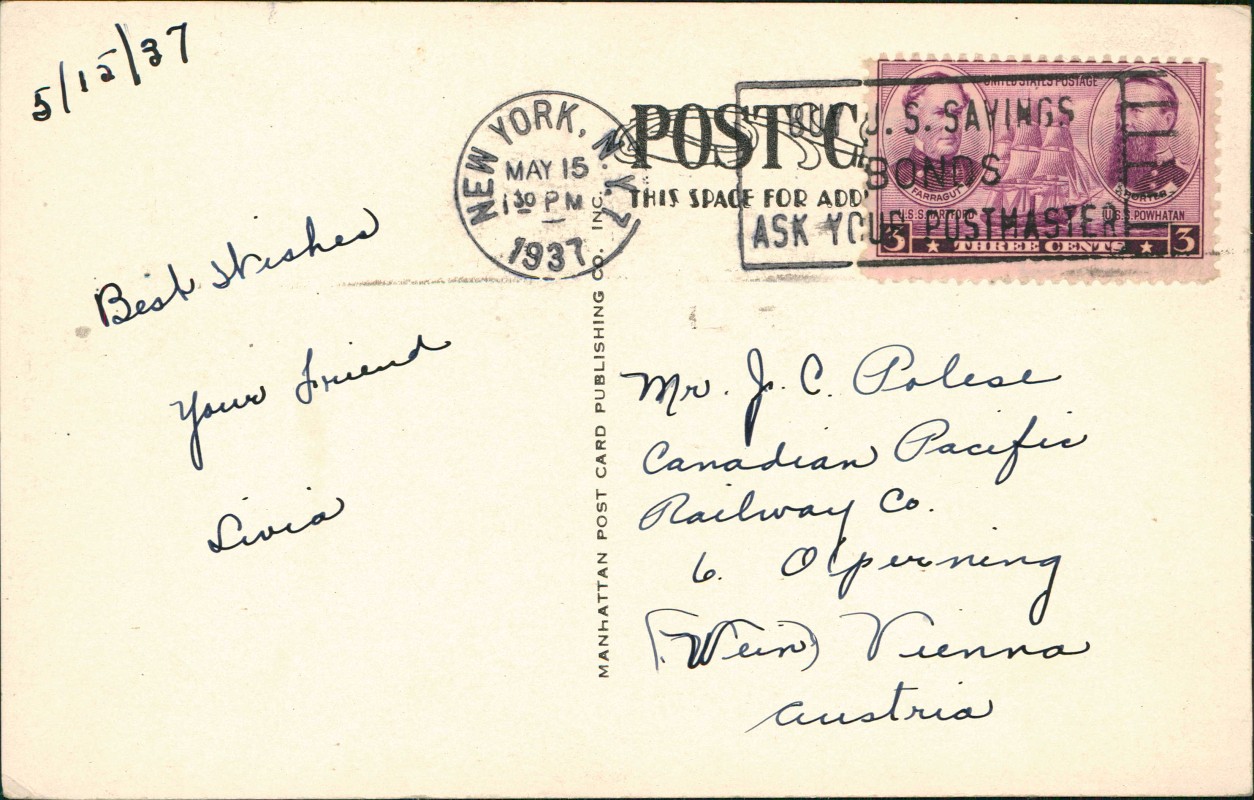 5/15/37
Best Wishes
Your Friend
Livia
NEW YORK, N.Y. 7
MAY 15
1 30 PM
1937
POST C
THIS SPACE FOR ADD
BUY U.S. SAVINGS
BONDS
ASK YOUR POSTMASTER
UNITED STATES POSTAGE
FARRAGUT
PORTER
U.S.S. HARTFORD
U.S.S. POWHATAN
3 THREE CENTS 3
MANHATTAN POST CARD PUBLISHING CO. INC.
Mr. J. C. Polese
Canadian Pacific
Railway Co.
6. Olperning
(Wein) Vienna
Austria